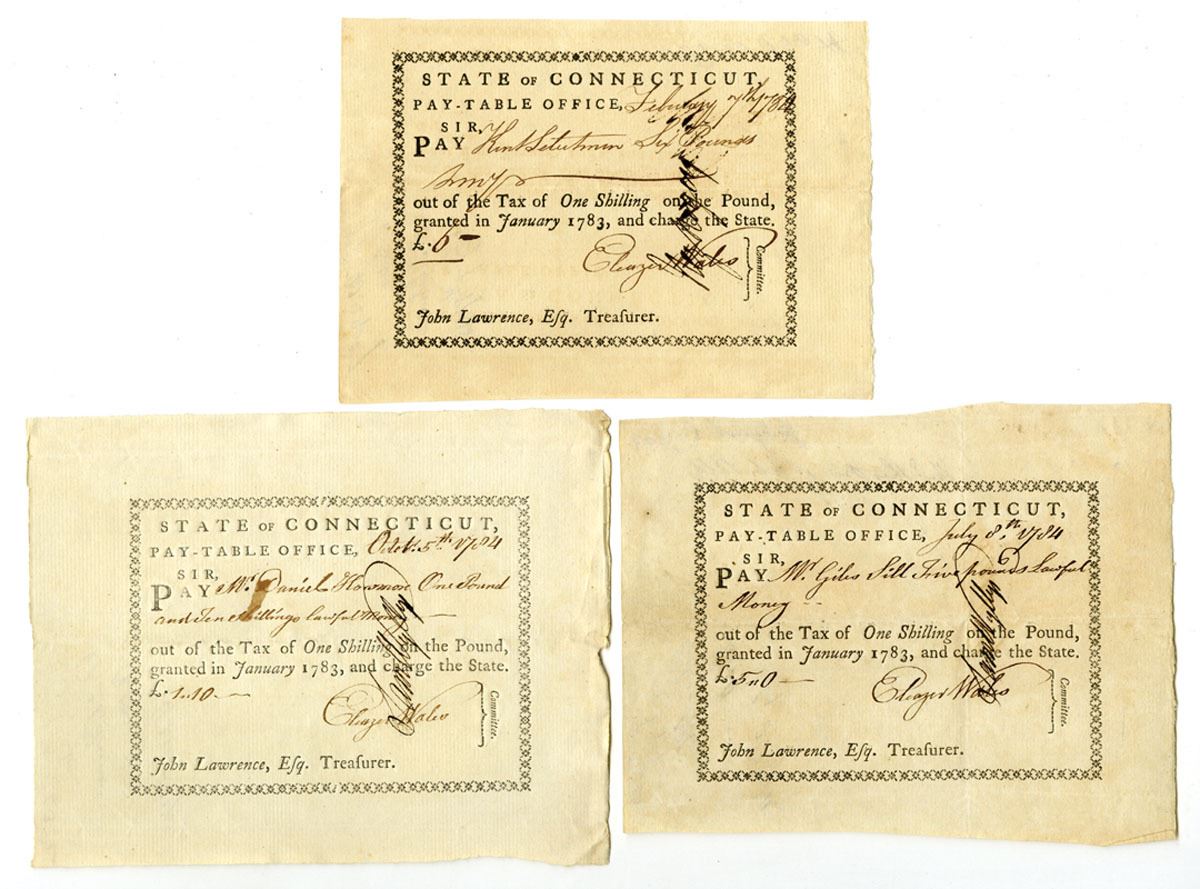 STATE OF CONNECTICUT,
PAY-TABLE OFFICE, 7th 1784
SIR,
PAY Six Pounds
out of the Tax of One Shilling on the Pound,
granted in January 1783, and charge the State.
£. 6
Eleazer Wales
Committee.
John Lawrence, Eſq. Treaſurer.
STATE OF CONNECTICUT,
PAY-TABLE OFFICE, Octob. 5th 1784
SIR,
PAY Mr. Daniel One Pound
and Ten Shillings lawful Money
out of the Tax of One Shilling on the Pound,
granted in January 1783, and charge the State.
£. 1..10
Eleazer Wales
Committee.
John Lawrence, Eſq. Treaſurer.
STATE OF CONNECTICUT,
PAY-TABLE OFFICE, July 8th 1784
SIR,
PAY Mr Giles Sill Five pounds Lawful
Money
out of the Tax of One Shilling on the Pound,
granted in January 1783, and charge the State.
£. 5 0
Eleazer Wales
Committee.
John Lawrence, Eſq. Treaſurer.